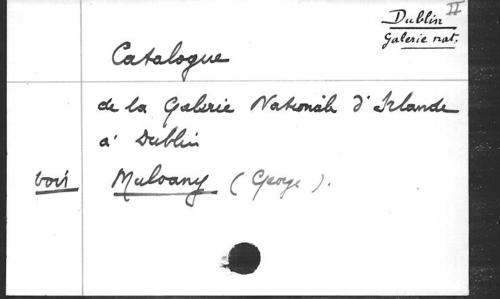 Dublin II
Galerie nat.
Catalogue
de la Galerie Nationale d'Irlande
à Dublin
voir Mulvany (George).